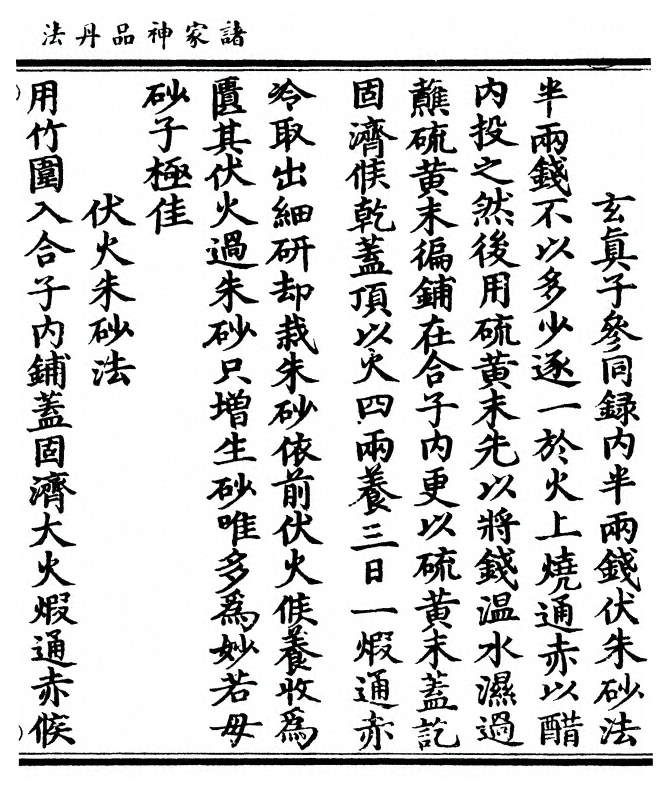 諸家神品丹法
玄真子參同録内半兩錢伏朱砂法
半兩錢不以多少逐一於火上燒通赤以醋
内投之然後用硫黄末先以將錢温水濕過
蘸硫黄末徧鋪在合子内更以硫黄末蓋訖
固濟候乾蓋頂以火四兩養三日一煆通赤
冷取出細研却栽朱砂依前伏火候養收為
匱其伏火過朱砂只增生砂唯多為妙若母
砂子極佳
伏火朱砂法
用竹圍入合子内鋪蓋固濟大火煆通赤候